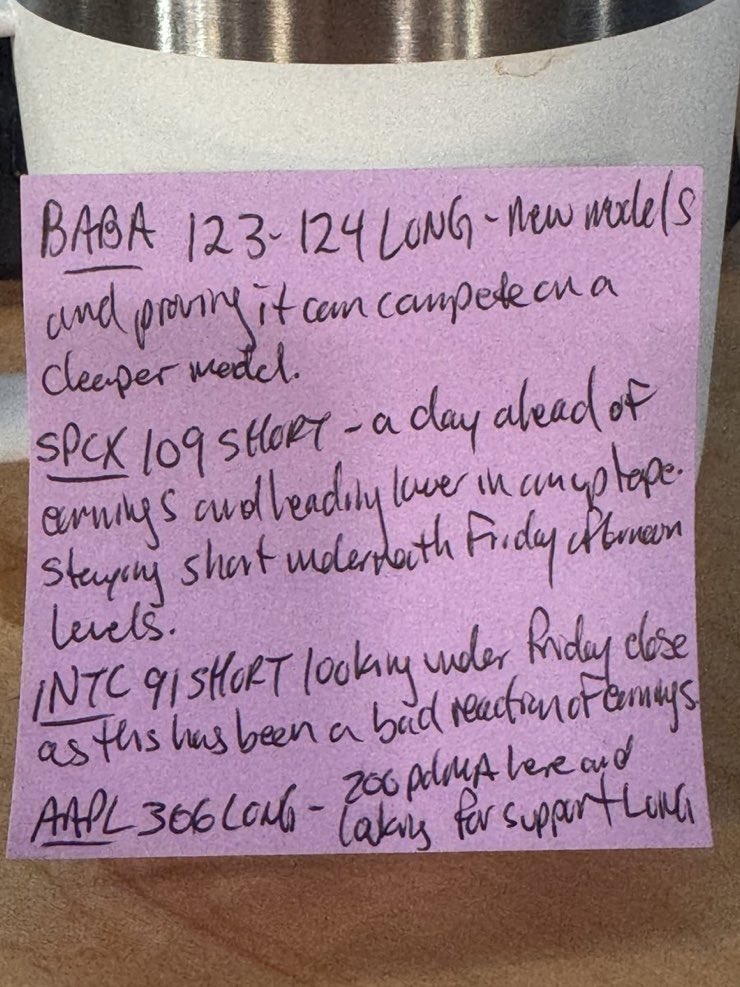 BABA 123-124 LONG - new models
and proving it can compete on a
cheaper model.
SPCX 109 SHORT - a day ahead of
earnings and heading lower in an up tape.
Staying short underneath Friday afternoon
levels.
INTC 91 SHORT looking under Friday close
as this has been a bad reaction of earnings.
AAPL 306 LONG - 200 pdMA here and
looking for support LONG